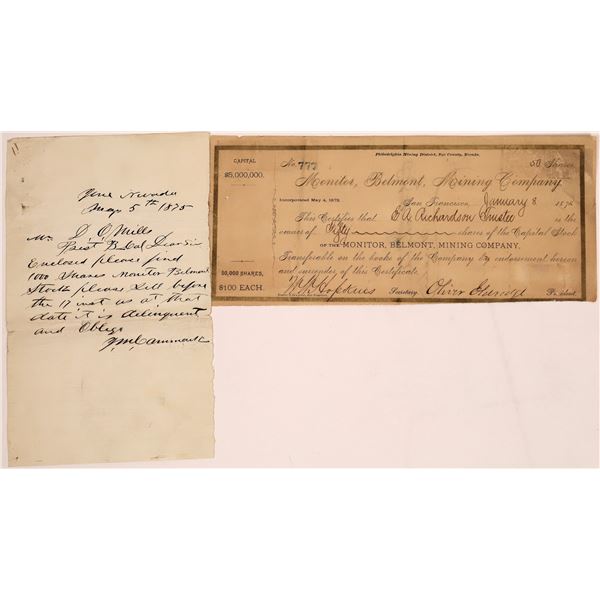 Nevada
May 5th 1875
Mr D, O, Mills
Prest B. Cal Dear Sir
Enclosed please find
1000 Shares Monitor Belmont
Stock please Sell before
the 17 inst as at that
date it is delinquent
and Oblige
CAPITAL
$5,000,000.
50,000 SHARES,
$100 EACH.
Philadelphia Mining District, Nye County, Nevada.
No. 777 50 Shares
Monitor, Belmont, Mining Company.
Incorporated May 4, 1872. San Francisco, January 8 187
This Certifies that Richardson Trustee is the
owner of Fifty shares of the Capital Stock
OF THE MONITOR, BELMONT, MINING COMPANY,
Transferable on the books of the Company by endorsement hereon
and surrender of this Certificate.
Hopkins Secretary. Oliver President.